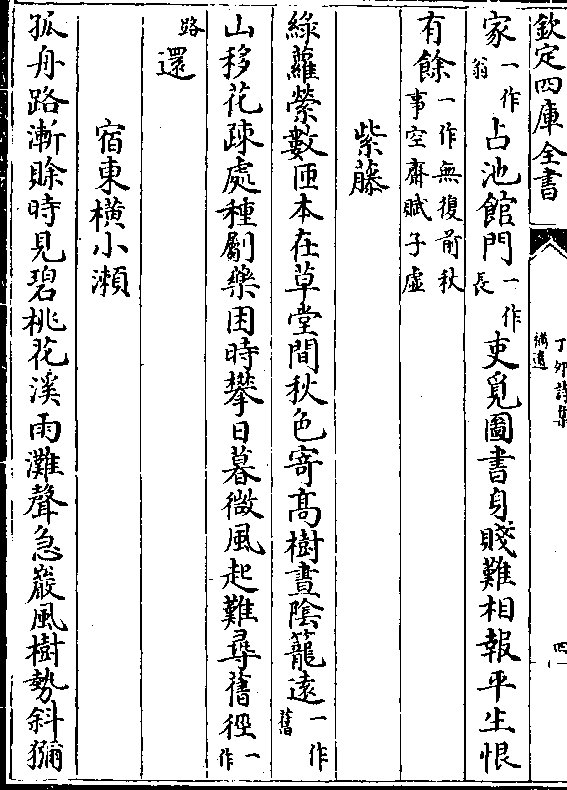 欽定四庫全書
丁卯詩集
補遺
四
家一作翁占池館門一作長吏覓圖書身賤難相報平生恨
有餘一作無復前秋事空齋賦子虛
紫藤
綠蘿縈數匝本在草堂間秋色寄高樹晝陰籠遠一作舊
山移花疎處種劚藥困時攀日暮微風起難尋舊徑一作
路還
宿東橫小瀬
孤舟路漸賖時見碧桃花溪雨灘聲急巖風樹勢斜獮